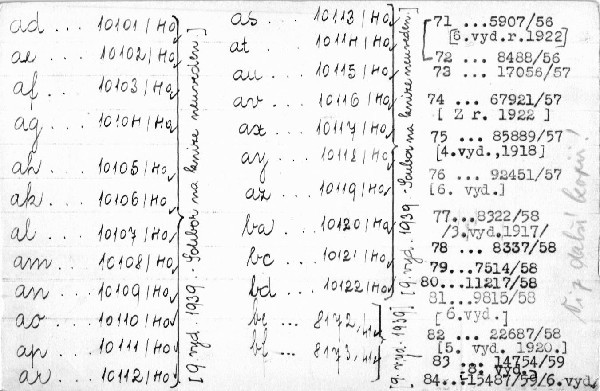 ad ... 10101/Ho
ae ... 10102/Ho
af ... 10103/Ho
ag ... 10104/Ho
ah ... 10105/Ho
ak ... 10106/Ho
al ... 10107/Ho
am ... 10108/Ho
an ... 10109/Ho
ao ... 10110/Ho
ap ... 10111/Ho
ar ... 10112/Ho
[9. vyd. 1939. Soubor na knize neuveden.]
as ... 10113/Ho
at ... 10114/Ho
au ... 10115/Ho
av ... 10116/Ho
ax ... 10117/Ho
ay ... 10118/Ho
az ... 10119/Ho
ba ... 10120/Ho
bc ... 10121/Ho
bd ... 10122/Ho
[9. vyd. 1939. Soubor na knize neuveden.]
8172/
bl ... 8173/
[9. vyd. 1939.]
71 ...5907/56
[6.vyd.r.1922]
72 ... 8488/56
73 ... 17056/57
74 ... 67921/57
[ Z r. 1922 ]
75 ... 85889/57
[4.vyd.,1918]
76 ... 92451/57
[6. vyd.]
77...8322/58
/3.vyd.1917/
78 ... 8337/58
79...7514/58
80...11217/58
81...9815/58
[6.vyd.]
82 ... 22687/58
[5. vyd. 1920.]
83 ... 14754/59
84...15487/59/6.vyd.
Viz další kopii!